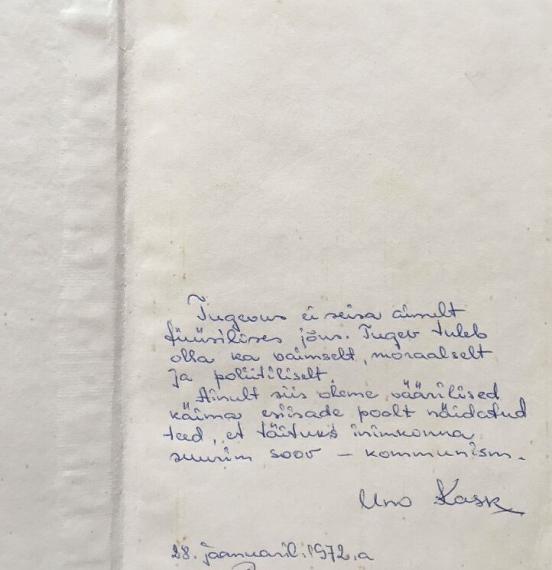 Tugevus ei seisa ainult
füüsilises jõus. Tugev tuleb
olla ka vaimselt, moraalselt
ja poliitiliselt.
Ainult siis oleme väärilised
käima esiisade poolt näidatud
teed, et täituks inimkonna
suurim soov – kommunism.
Uno Kask
28. jaanuaril. 1972. a